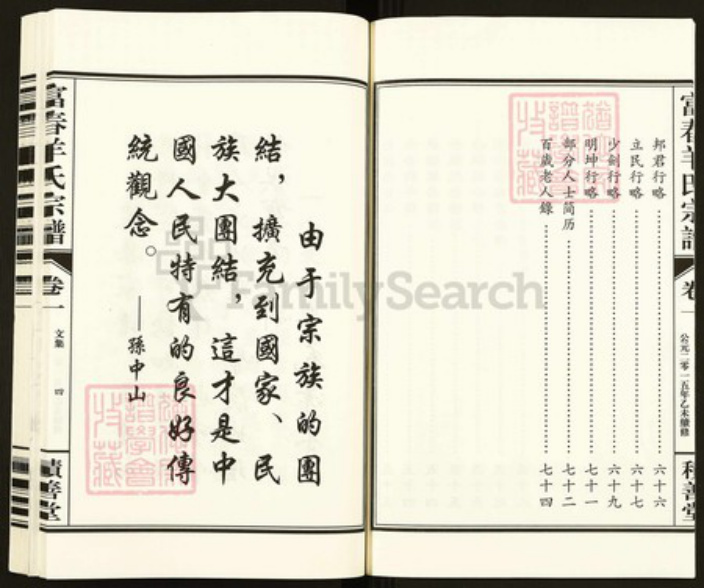 富春羊氏宗譜
卷一
公元二零一五年乙未續修
積善堂
邦君行略 六十六
立民行略 六十七
少劍行略 六十九
明坤行略 七十一
部分人士简历 七十二
百歲老人錄 七十四
由于宗族的團
結，擴充到國家、民
族大團結，這才是中
國人民特有的良好傳
統觀念。
——孫中山
富春羊氏宗譜
卷一
文集
四
積善堂
FamilySearch